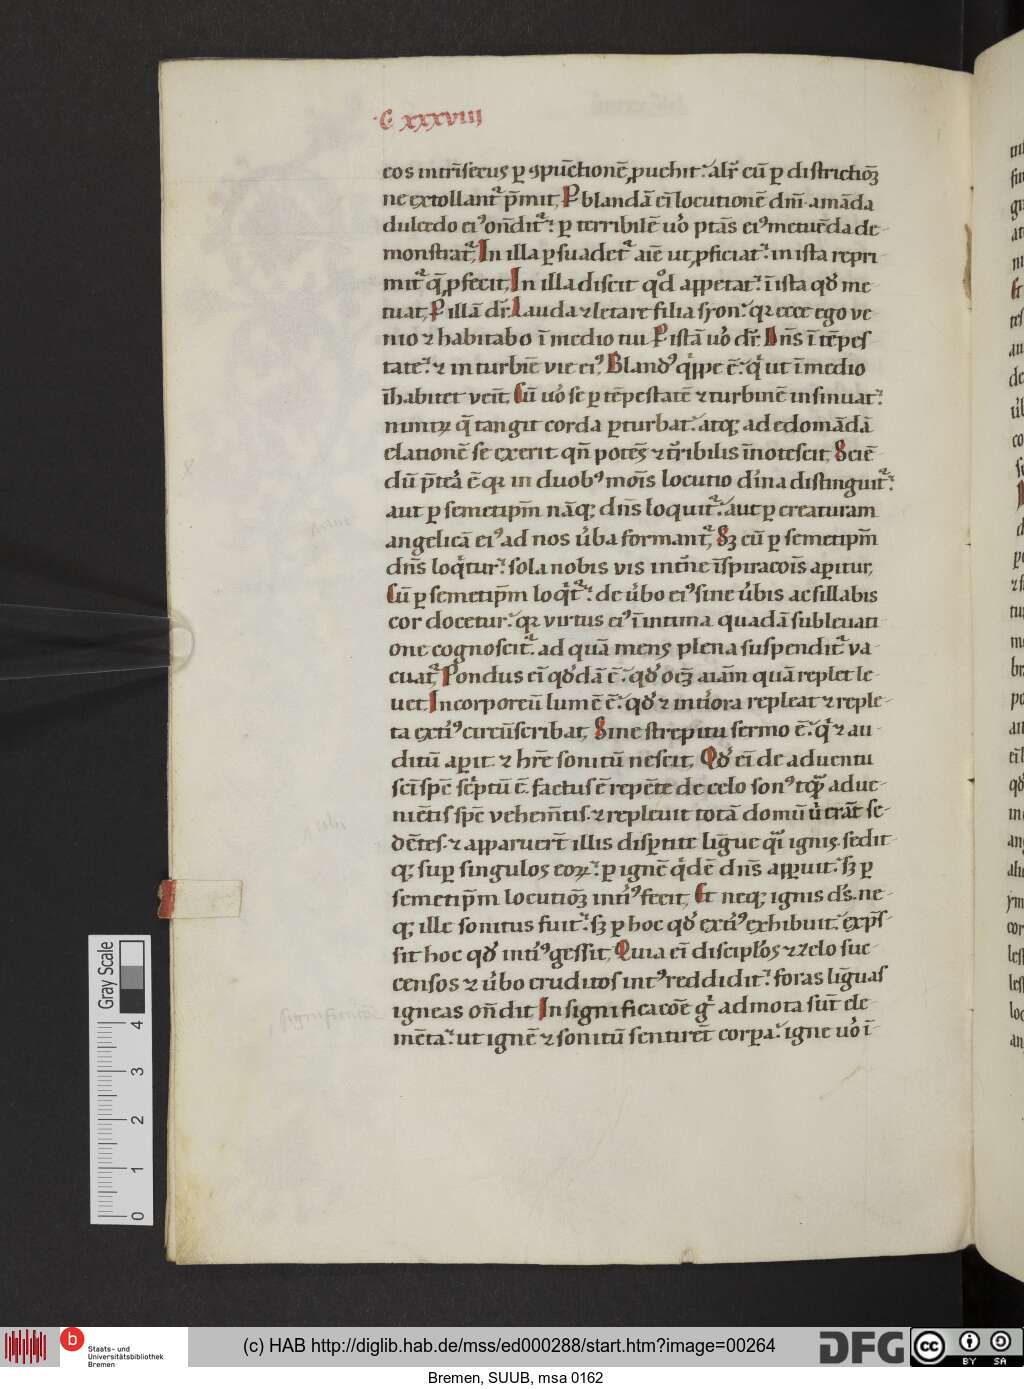 ·C· xxxviii
eos intri̅secus ꝑ ꝯpu̅ctione̅ ꝓuehit. alr̅ cu̅ ꝑ districtio̅
ne extollant᷑ p̅mit. Ꝑ blanda̅ ei̅ locutione̅ dn̅i amāda
dulcedo eiꝰ on̅dit᷑. ꝑ terribile̅ uo̓ ptās eiꝰ metue̅da de-
monstrat᷑. In illa ꝑsuadet᷑ aīe ut ꝓficiat. in ista repri-
mit᷑ q̅ ꝓfecit. In illa discit qd̓ appetat. ī ista qd̓ me-
tuat. Ꝑ illā dr̅. Lauda ⁊ letare filia syon. qr ecce ego ve-
nio ⁊ habitabo ī medio tui. Ꝑ istā uo̓ dr̅. Dn̅s ī te̅pes
tate. ⁊ in turbine̅ vie eiꝰ. Blandꝰ q̓ppe e̅. q̓ ut ī medio
īhabitet veīt. Cu̅ uo̓ se ꝑ te̅pestate̅ ⁊ turbine̅ insinuat.
nimiꝝ q̅ tangit corda ꝑturbat. atqꝫ ad edomādā
elatione̅ se exerit qn̅ pote̅s ⁊ t̓ribilis īnotescit. Scie̅
dū p̅tea̓ e̅ qr in duobꝰ moīs locutio dīna distinguit᷑.
aut ꝑ semetipm̅ nāqꝫ dn̅s loquit᷑. aut ꝑ creaturam
angelicā eiꝰ ad nos u̓ba formant᷑. Sꝫ cū ꝑ semetipm̅
dn̅s loq̓tur. sola nobis vis int̓ne īspiracoīs aꝑitur.
Cū ꝑ semetipm̅ loq̓t᷑. de u̓bo eiꝰ sine u̓bis ac sillabis
cor docetur. qr virtus eiꝰ ī intima quadā subleuati
one cognoscit᷑. ad quā mens plena suspendit᷑ va-
cuat᷑. Pondus ei̅ qd̓dā e̅. qd̓ oe̅ꝫ aīam quā replet le-
uet. Incorporeū lume̅ e̅. qd̓ ⁊ int̓iora repleat ⁊ reple-
ta ext̓iꝰ circūscribat. Sine strepitu sermo e̅. q̓ ⁊ au-
ditū aꝑit ⁊ hr̅e sonitū nescit. Qd̓ ei̅ de aduentu
sc̅i sp̅c sc̓ptū e̅. factus e̅ repe̅te de celo sonꝰ tq̅ adue-
nie̅tis sp̅c vehem̅tis. ⁊ repleuit totā domū u̓ erāt se-
de̅tes. ⁊ apparuer̅t illis disp̅tite līgue q̅i ignis. sedit
qꝫ suꝑ singulos eoꝝ. ꝑ igne̅ q̓de̅ dn̅s apꝑuit. sꝫ ꝑ
semetipm̅ locutio̅ꝫ int̓iꝰ fecit. Et neqꝫ ignis ds̅. ne-
qꝫ ille sonitus fuit. sꝫ ꝑ hoc qd̓ ext̓iꝰ exhibuit. exp̅s-
sit hoc qd̓ int̓iꝰ gessit. Quia ei̅ discipl̓os ⁊ zelo suc-
censos ⁊ u̓bo eruditos intꝰ reddidit. foras līguas
igneas on̅dit. In significacoe̅ g̓ admota sūt ele-
me̅ta. ut igne̅ ⁊ sonitū sentire̅t corꝑa. igne uo̓ ī
Gray Scale
0 1 2 3 4
b Staats- und
Universitätsbibliothek
Bremen
(c) HAB http://diglib.hab.de/mss/ed000288/start.htm?image=00264
DFG
cc BY SA
Bremen, SUUB, msa 0162